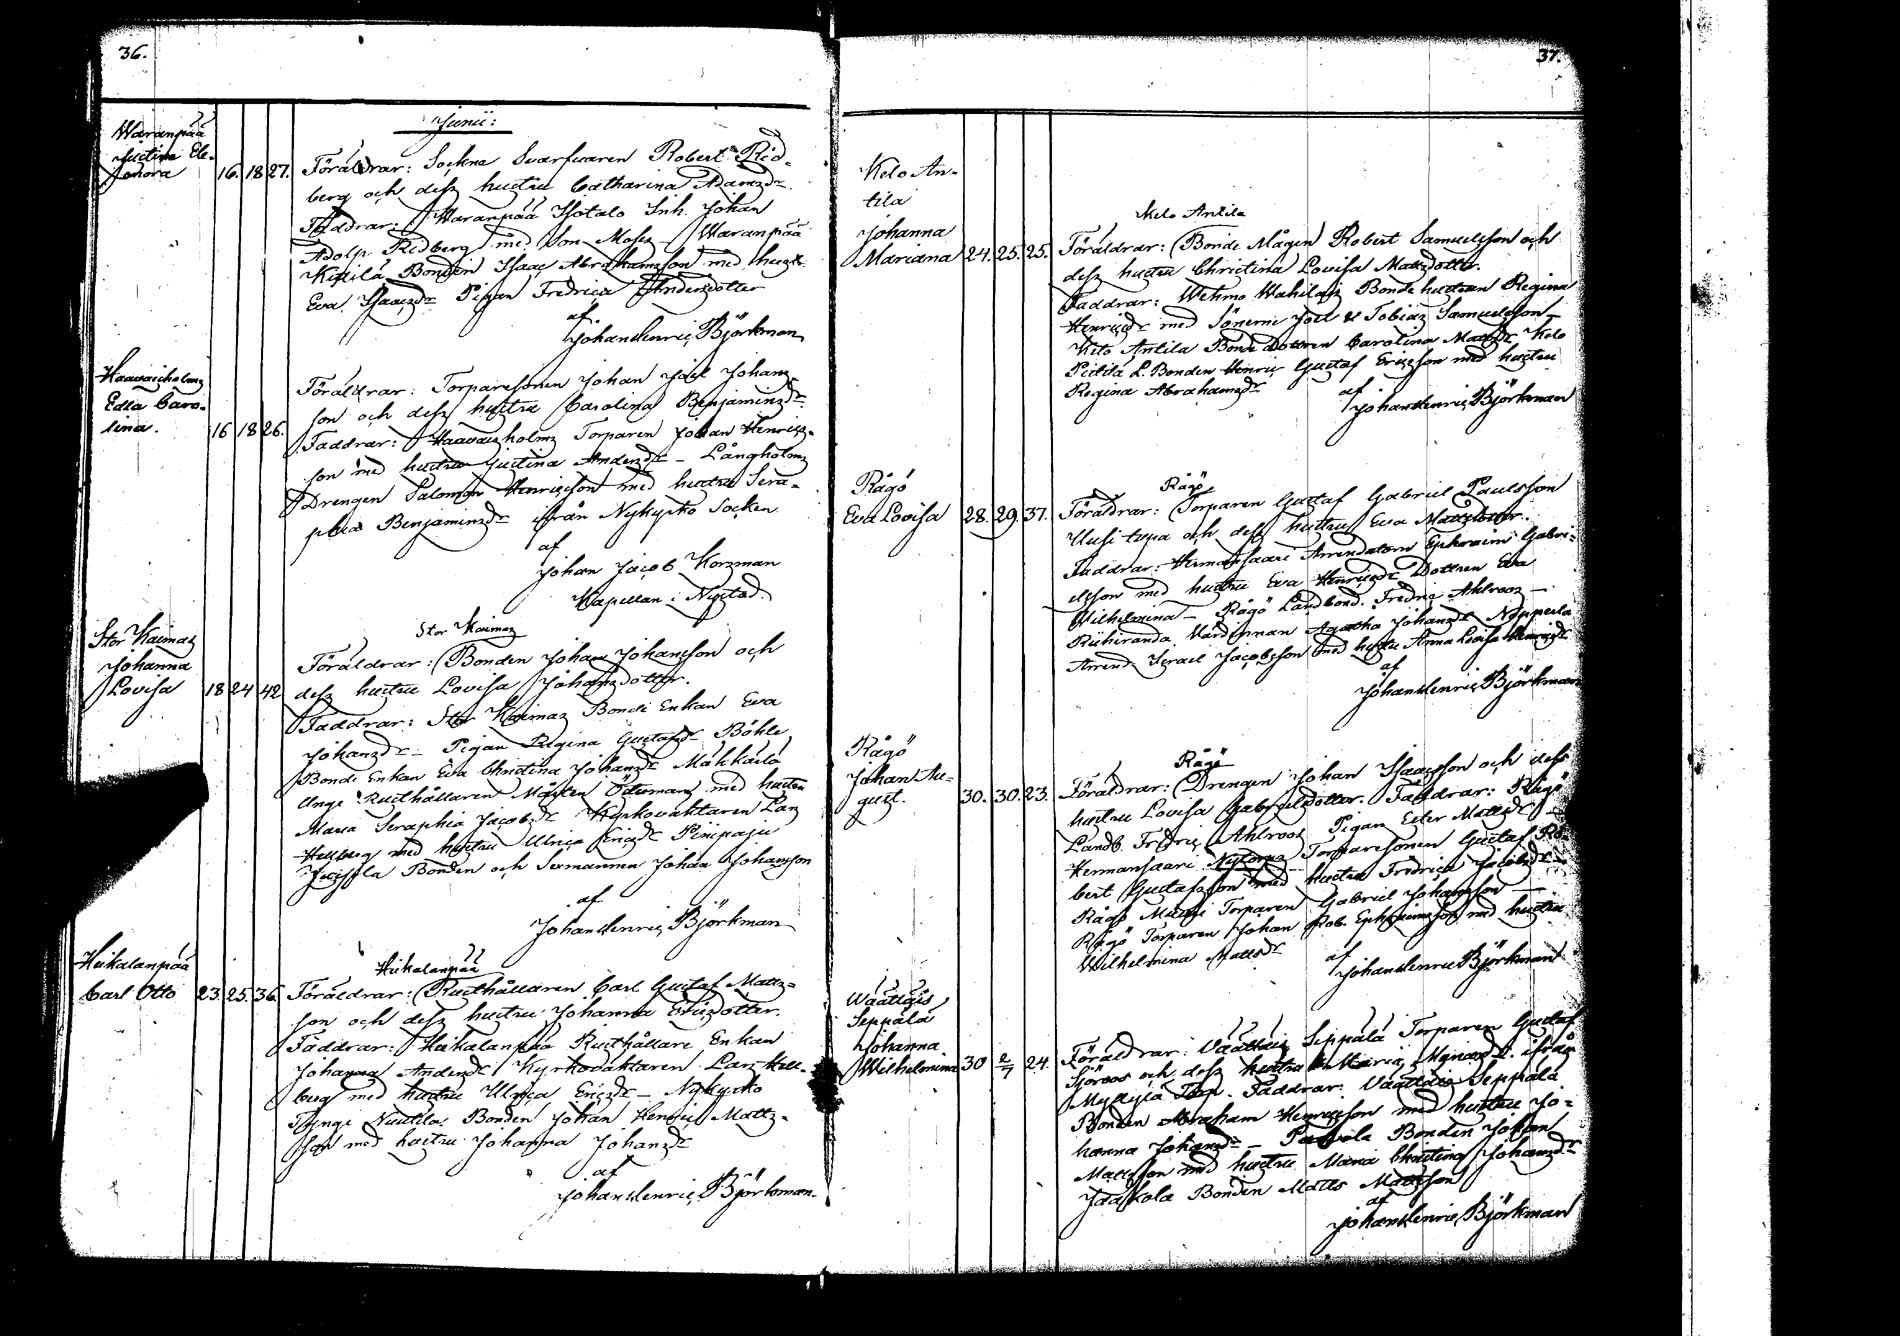 36.
Junii:
Waranpää
Justina Ele-
onora
16. 18 27.
Föräldrar: Sockne Svarfvaren Robert Rid-
berg och dess hustru Catharina Adamsdr.
Faddrar: Waranpää Isotalo Inh. Johan
Adolp Ridberg med Son Moses - Waranpää
Bonden Isaac Abrahamsson med hustr.
Eva Isaacsdr Pigan Fredrica Andersdotter
af
Johan Henric Björkman
Haavaisholms
Edla Caro-
lina.
16 18 26.
Föräldrar: Torparesonen Johan Joel Johans-
son och dess hustru Carolina Benjaminsdr
Faddrar: Haavaisholms Torparen Johan Henrics-
son med hustru Justina Andersdr - Långholms
Drengen Salomon Henricsson med hustru Sera-
phia Benjaminsdr ifrån Nykyrko Socken
af
Johan Jacob Korsman
Kapellan i Nystad.
Stor Kaimas
Johanna
Lovisa
18 24 42
Stor Kaimas
Föräldrar: Bonden Johan Johansson och
dess hustru Lovisa Johansdotter.
Faddrar: Stor Kaimas Bonde Enkan Eva
Johansdr - Pigan Regina Gustafsdr Böhle
Bonde Enkan Eva Christina Johansdr Mäkkälä
Unge Rusthållaren Mårten Östermans med hustru
Maria Seraphia Jacobsdr Kyrkovaktaren Lars
Hellberg med hustru Ulrica Ericsdr Pinipaju
Bonden och Sexmannen Johan Johansson
af
Johan Henric Björkman
Hiikalanpää
Carl Otto
23. 25. 36.
Hiikalanpää
Föräldrar: Rusthållaren Carl Gustaf Matts-
son och dess hustru Johanna Ericsdotter.
Faddrar: Hiikalanpää Rusthållare Enkan
Johanna Andersdr Kyrkovaktaren Lars Hell-
berg med hustru Ulrica Ericsdr - Nykyrko
Bonden Johan Henric Matts-
son med hustru Johanna Johansdr
af
Johan Henric Björkman.
37.
Kelo An-
tila
Johanna
Mariana
24. 25. 25.
Kelo Antila
Föräldrar: Bonde Mågen Robert Samuelsson och
dess hustru Christina Lovisa Mattsdotter.
Faddrar: Wehmo Bonde hustrun Regina
Henricsdr med Sönerne Joel & Tobias Samuelsson -
Kelo Antila Bonde Dottren Carolina Mattsdr Kelo
L. Bonden Henric Gustaf Ericsson med hustru
Regina Abrahamsdr
af
Johan Henric Björkman
Rågö
Eva Lovisa
28. 29. 37.
Rågö
Föräldrar: Torparen Gustaf Gabriel Paulsson
Uusi tupa och dess hustru Eva Mattsdotter.
Faddrar: Hermansaari Arrendatorn Ephraim Gabri-
elsson med hustru Eva Henricsdr Dottren Eva
Wilhelmina - Rågö Landbond. Fredric Ahlroos -
Riihiranda Värdinnan Agatha Johansdr
Arrend. Israel Jacobsson med hustru Anna Lovisa Henricsdr
af
Johan Henric Björkman
Rågö
Johan Au-
gust.
30. 30. 23.
Rågö
Föräldrar: Drengen Johan Isaacsson och dess
hustru Lovisa Gabrielsdotter. Faddrar: Rågö
Landb. Fredric Ahlroos Pigan Ester Mattsdr -
Hermansaari Nytorps Torparesonen Gustaf Ro-
bert Gustafsson med hustru Fredrica Jacobsdr -
Rågö Torparen Gabriel Johansson -
Rågö Torparen Johan Rob. Ephraimsson med hustru
Wilhelmina Mattsdr
af
Johan Henric Björkman
Waattais
Seppälä
Johanna
Wilhelmina
30 2/7 24.
Föräldrar: Vaattais Seppälä Torparen Gustaf
Sjöroos och dess hustru Maria ifrån
Faddrar: Vaattais Seppälä
Bonden Abraham Henricsson med hustru Jo-
hanna Johansdr - Bonden Johan
Mattsson med hustru Maria Christina Johansdr
Jaakola Bonden Matts Mattsson
af
Johan Henric Björkman